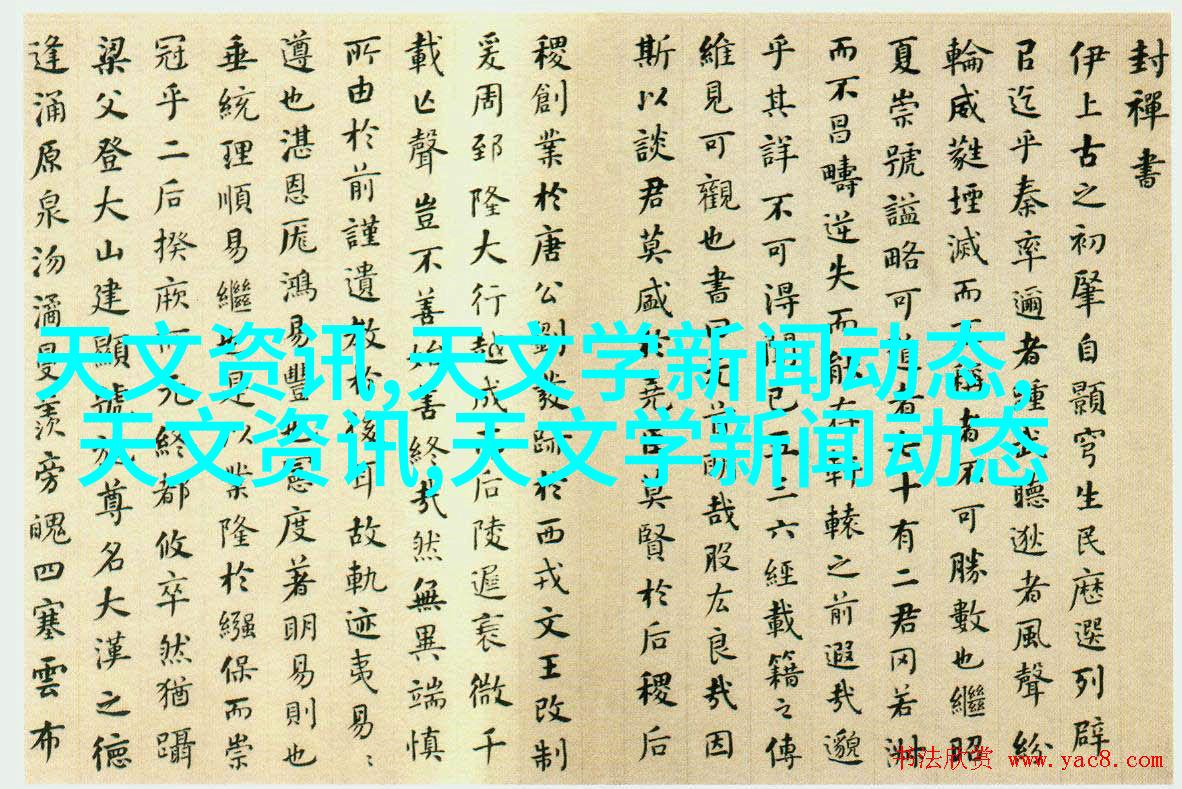 封禪書
伊上古之初肇自顥穹生民歷選列辟
㠯迄乎秦率邇者踵武聽逖者風聲紛
輪威蕤堙滅而不稱者不可勝數也繼昭
夏崇號謚略可道者七十有二君罔若淑
而不昌疇逆失而能存軒轅之前遐哉邈
乎其詳不可得聞已五三六經載籍之傳
維見可觀也書曰元首明哉股厷良哉因
斯以談君莫盛於堯臣莫賢於后稷后
稷創業於唐公劉發跡於西戎文王改制
爰周郅隆大行越成而后陵遲衰微千
載亡聲豈不善始善終哉然無異端慎
所由於前謹遺教於後耳故軌迹夷易、
遵也湛恩厖鴻易豐也憲度著明易則也
垂統理順易繼也是以業隆於繈保而崇
冠乎二后揆厥所元終都攸卒然猶躡
梁父登大山建顯號施尊名大漢之德
逢涌原泉沕潏曼羨旁魄四塞雲布
天文资讯,天文学新闻动态,
天文资讯,天文学新闻动态
书法欣赏 www.yac8.com